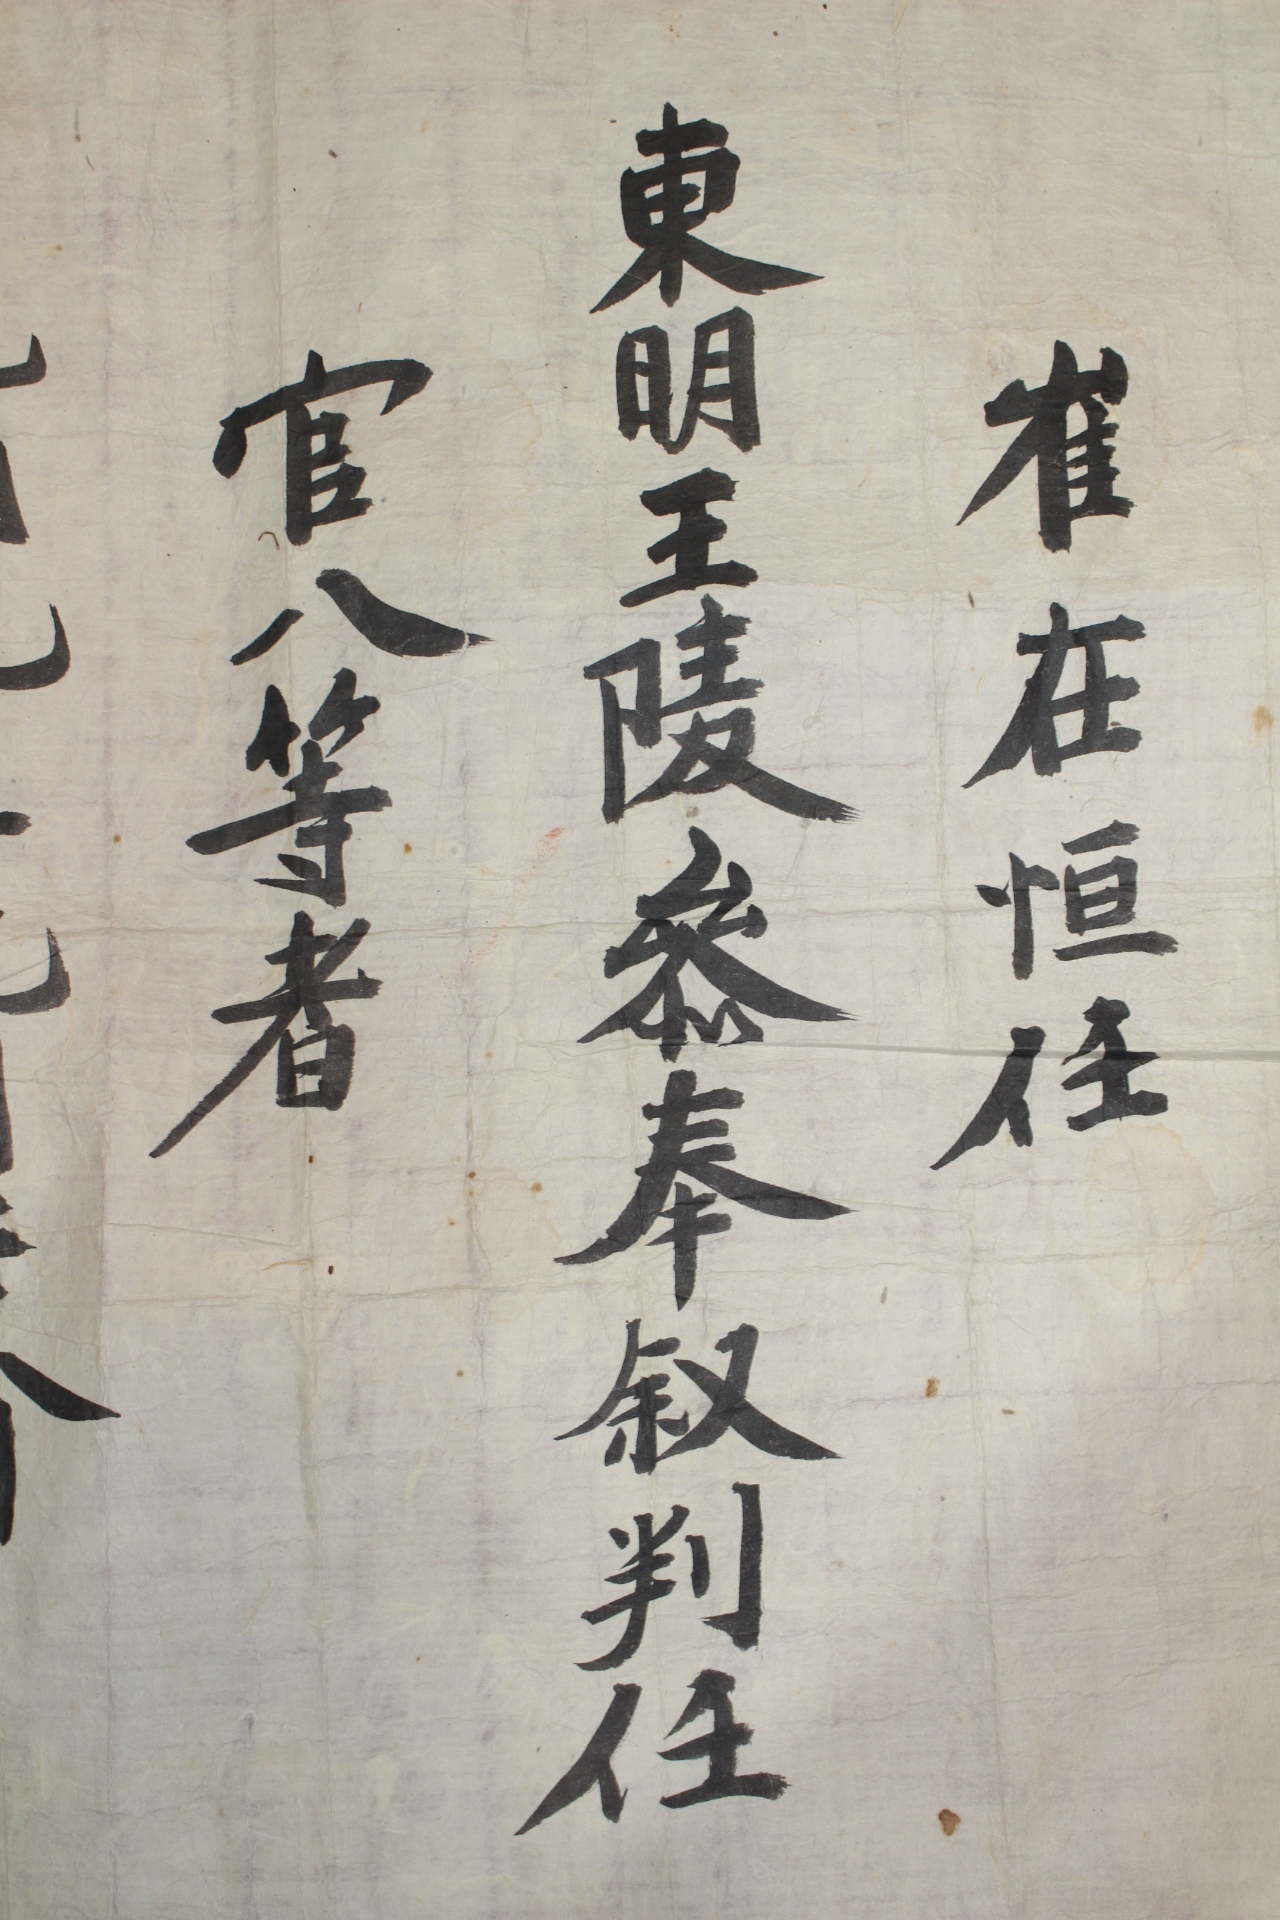 崔在恒任
東明王陵參奉叙判任
官八等者